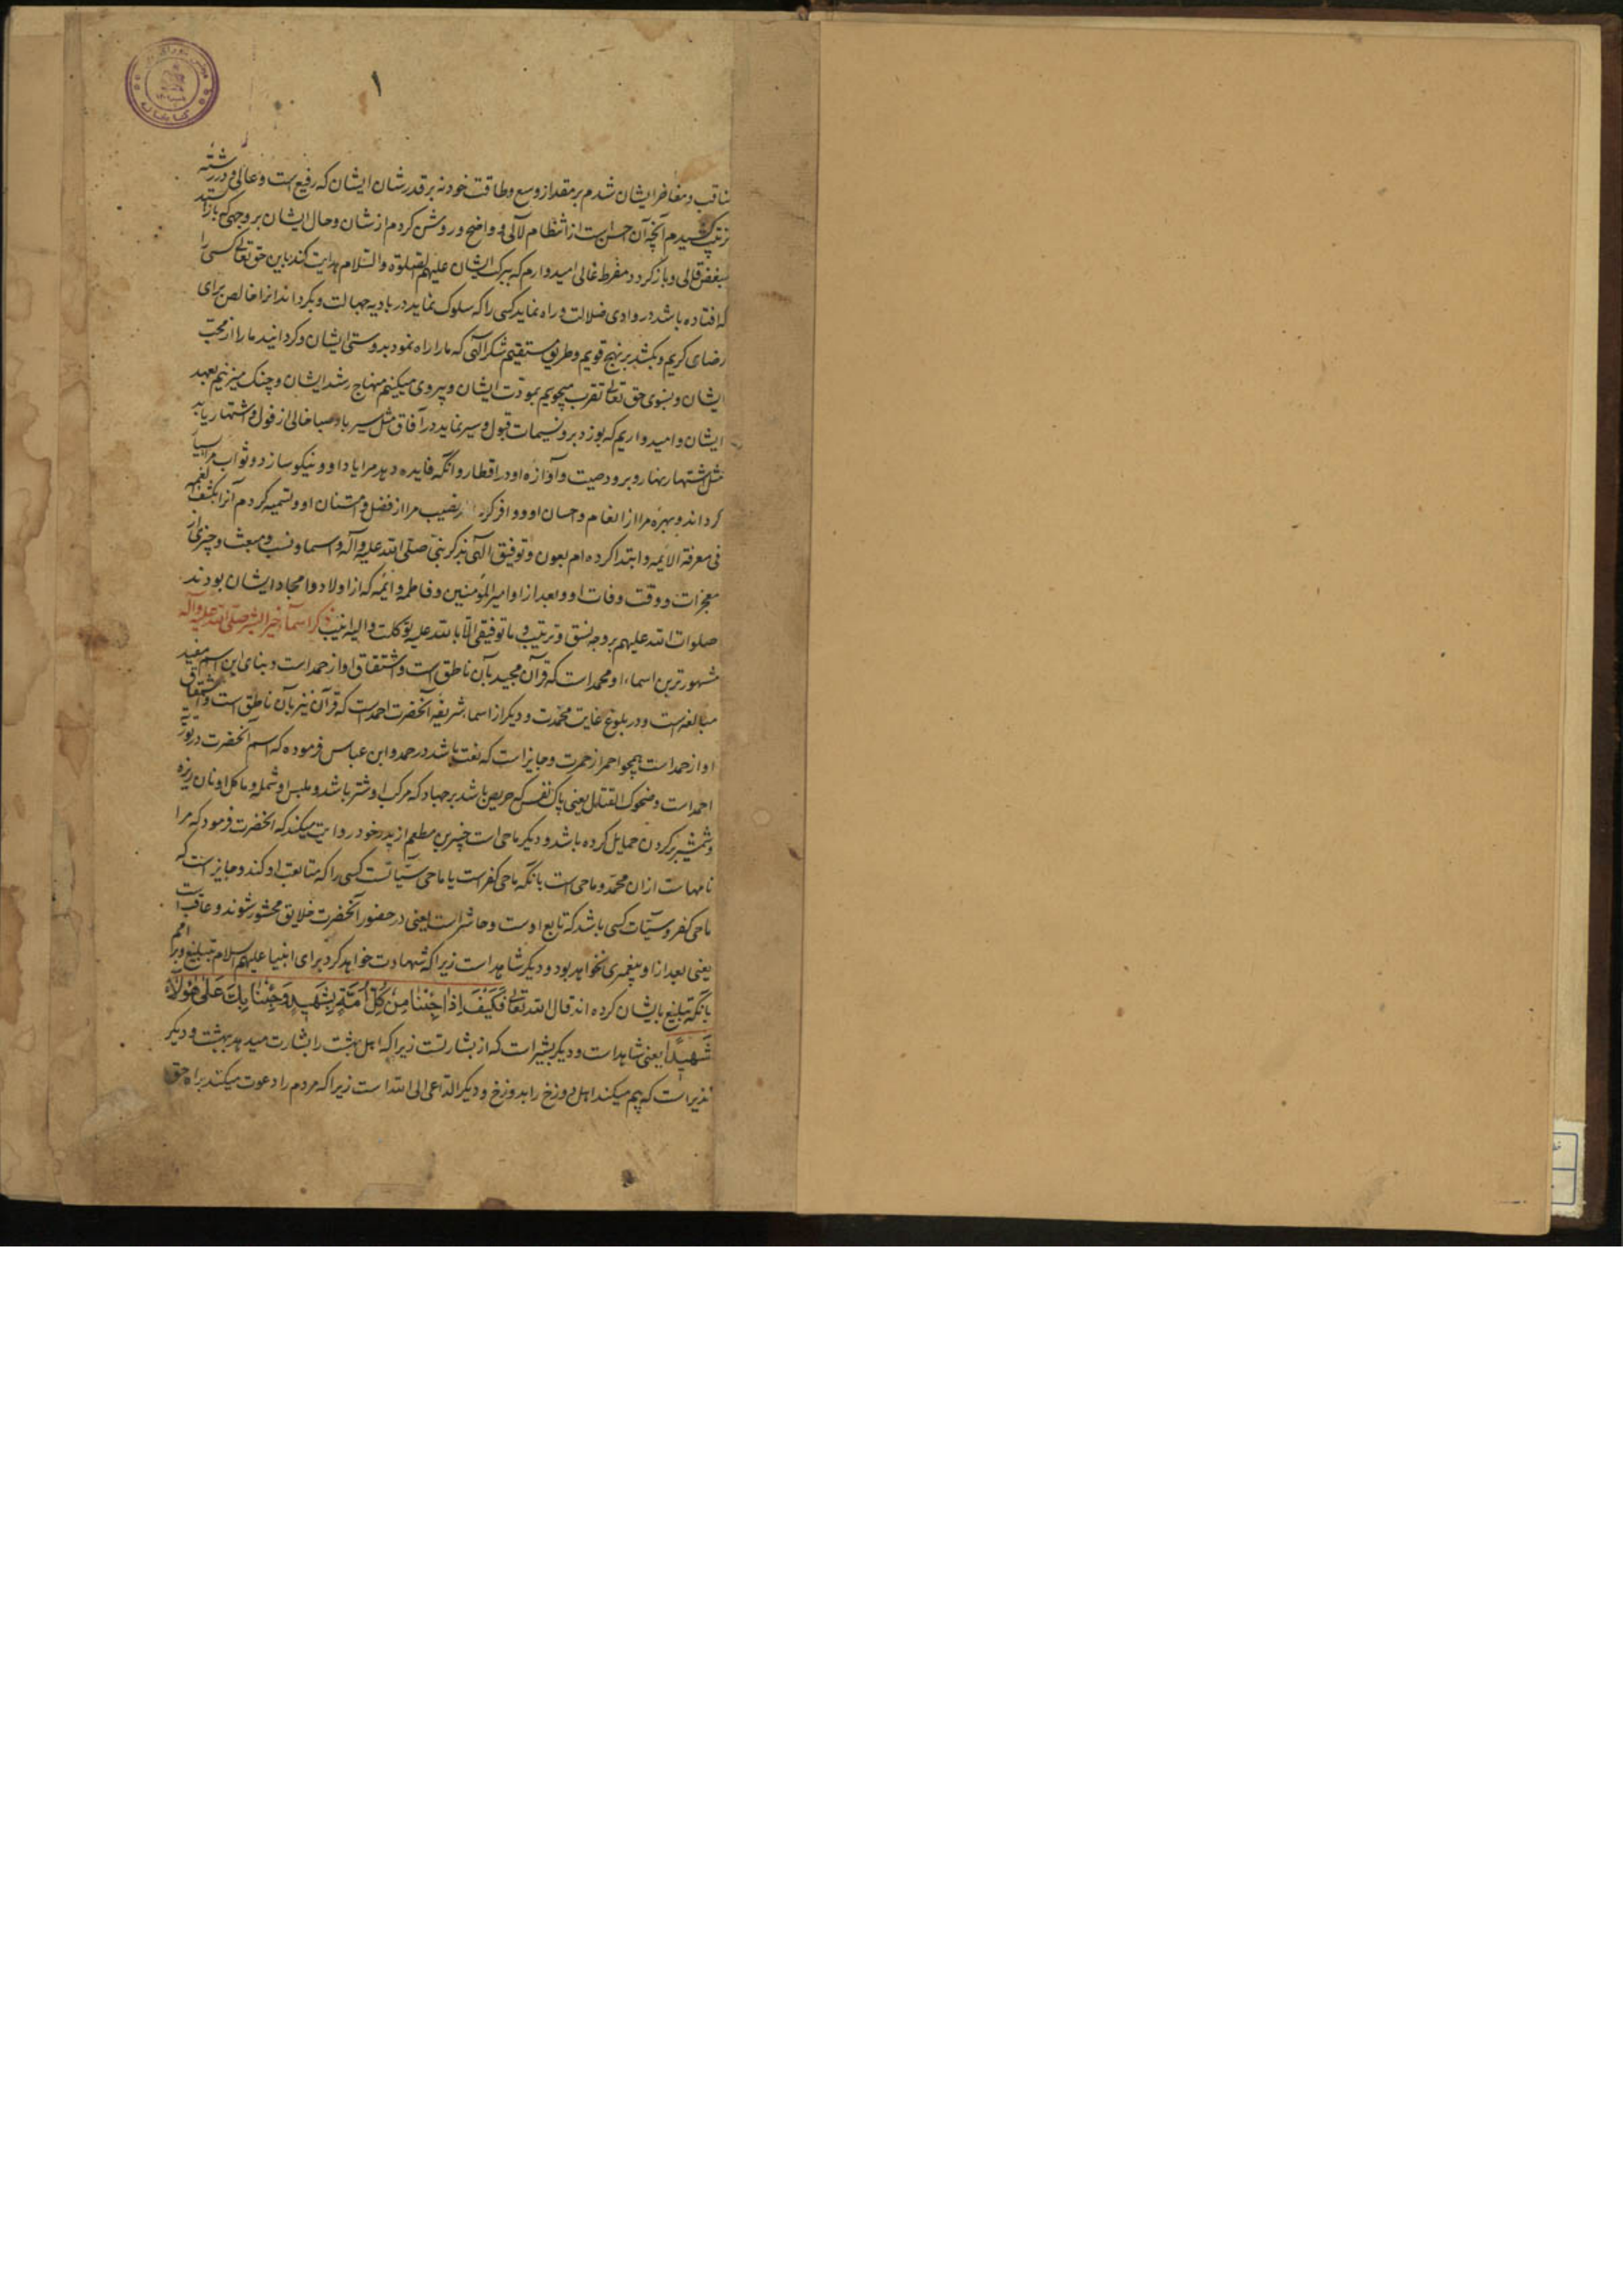 ۱
مناقب و مفاخر ایشان شدم بر مقدار وسع و طاقت خود نه بر قدر شان ایشان که رفیع است و عالی و در رشته
ترتیب کشیدم آنچه آن احسن است از انتظام لآلی و واضح و روشن کردم از شان و حال ایشان بر وجهی که باز استد
مبغض قالی و باز کردد مفرط غالی امیدوارم که ببرکت ایشان علیهم الصلوة والسلام هدایت کند باین حق تعالی کسی را
که افتاده باشد در وادی ضلالت و راه نماید کسی را که سلوک نماید در بادیه جهالت و بکرداند انرا خالص برای
رضای کریم و بکشد بر نهج قویم و طریق مستقیم شکر الهی که ما را راه نمود بدوستی ایشان و کردانید ما را از محب
ایشان و بسوی حق تعالی تقرب میجویم بمودت ایشان و پیروی میکنیم منهاج رشد ایشان و چنک میزنیم بعهد
ایشان و امیدواریم که بوزد برو نسیمات قبول و سیر نماید در آفاق مثل سیر باد صبا خالی از فول و اشتهار یابد
مثل اشتهار نهار و برود صیت و آوازه او در اقطار و انکه فایده دهد مرا یاد او و نیکو سازد و ثواب مرا بسیار
کرداند و بهره مرا از انعام و احسان او و وافر کرد نصیب مرا از فضل و امتنان او و تسمیه کردم آنرا بکشف الغمه
فی معرفة الائمه و ابتدا کرده ام بعون و توفیق الهی بذکر نبی صلی الله علیه و آله و اسما و نسب و مبعث و چیزی از
معجزات و وقت وفات او و بعد از او امیرالمؤمنین و فاطمه و ائمه که از اولاد و امجاد ایشان بودند
صلوات الله علیهم بر وجه نسق و ترتیب و ما توفیقی الا بالله علیه توکلت و الیه انیب ذکر اسماء خیر البشر صلی الله علیه و آله
مشهورترین اسماء او محمد است که قرآن مجید بآن ناطق است و اشتقاق او از حمد است و بنای این اسم مفید
مبالغه است و در بلوغ غایت محمدت و دیکر از اسماء شریفه آنحضرت احمد است که قرآن نیز بآن ناطق است و اشتقاق
او از حمد است همچو احمر از حمرت و جایز است که نعت باشد در حمد و ابن عباس فرموده که اسم آنحضرت در توریة
احمد است و ضحوک القتال یعنی پاک نفس که حریص باشد بر جهاد که مرکب او شتر باشد و ملبس او شمله و ماکل او نان ریزه
و شمشیر بر کردن حمایل کرده باشد و دیکر ماحی است جبیر بن مطعم از پدر خود روایت میکند که انحضرت فرمود که مرا
نامهاست از ان محمد و ماحی است بانکه ماحی کفر است یا ماحی سیئاتست کسی را که متابعت او کند و جایز است که
ماحی کفر و سیئات کسی باشد که تابع اوست و حاشر است یعنی در حضور آنحضرت خلایق محشور شوند و عاقب است
یعنی بعد از او پیغمبری نخواهد بود و دیکر شاهد است زیرا که شهادت خواهد کرد برای انبیا علیهم السلام بتبلیغ و بر امم
بانکه تبلیغ بایشان کرده اند قال الله تعالی فَكَيْفَ اِذَا جِئْنَا مِنْ كُلِّ اُمَّةٍ بِشَهِيدٍ وَجِئْنَا بِكَ عَلَى هٰؤُلَاءِ
شَهِيدًا یعنی شاهد است و دیکر بشیر است که از بشارتست زیرا که اهل بهشت را بشارت میدهد ببهشت و دیکر
نذیر است که بیم میکند اهل دوزخ را بدوزخ و دیکر الداعی الی الله است زیرا که مردم را دعوت میکند براه حق